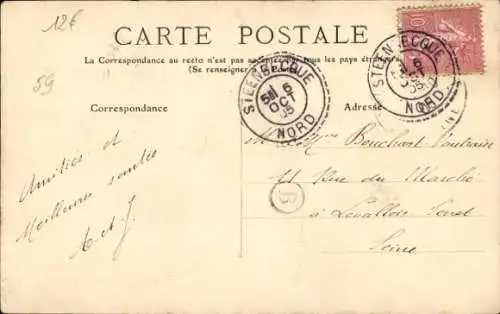 12€
59
CARTE POSTALE
La Correspondance au recto n'est pas acceptée par tous les pays étrangers
(Se renseigner à
Correspondance
Adresse
STEENBECQUE
6
OCT
05
NORD
STEENBECQUE
6
OCT
05
NORD
10
Amitiés et
Meilleure santée
A et J
M Bouchart
11 Rue du Marché
à Levallois Perret
Seine
B